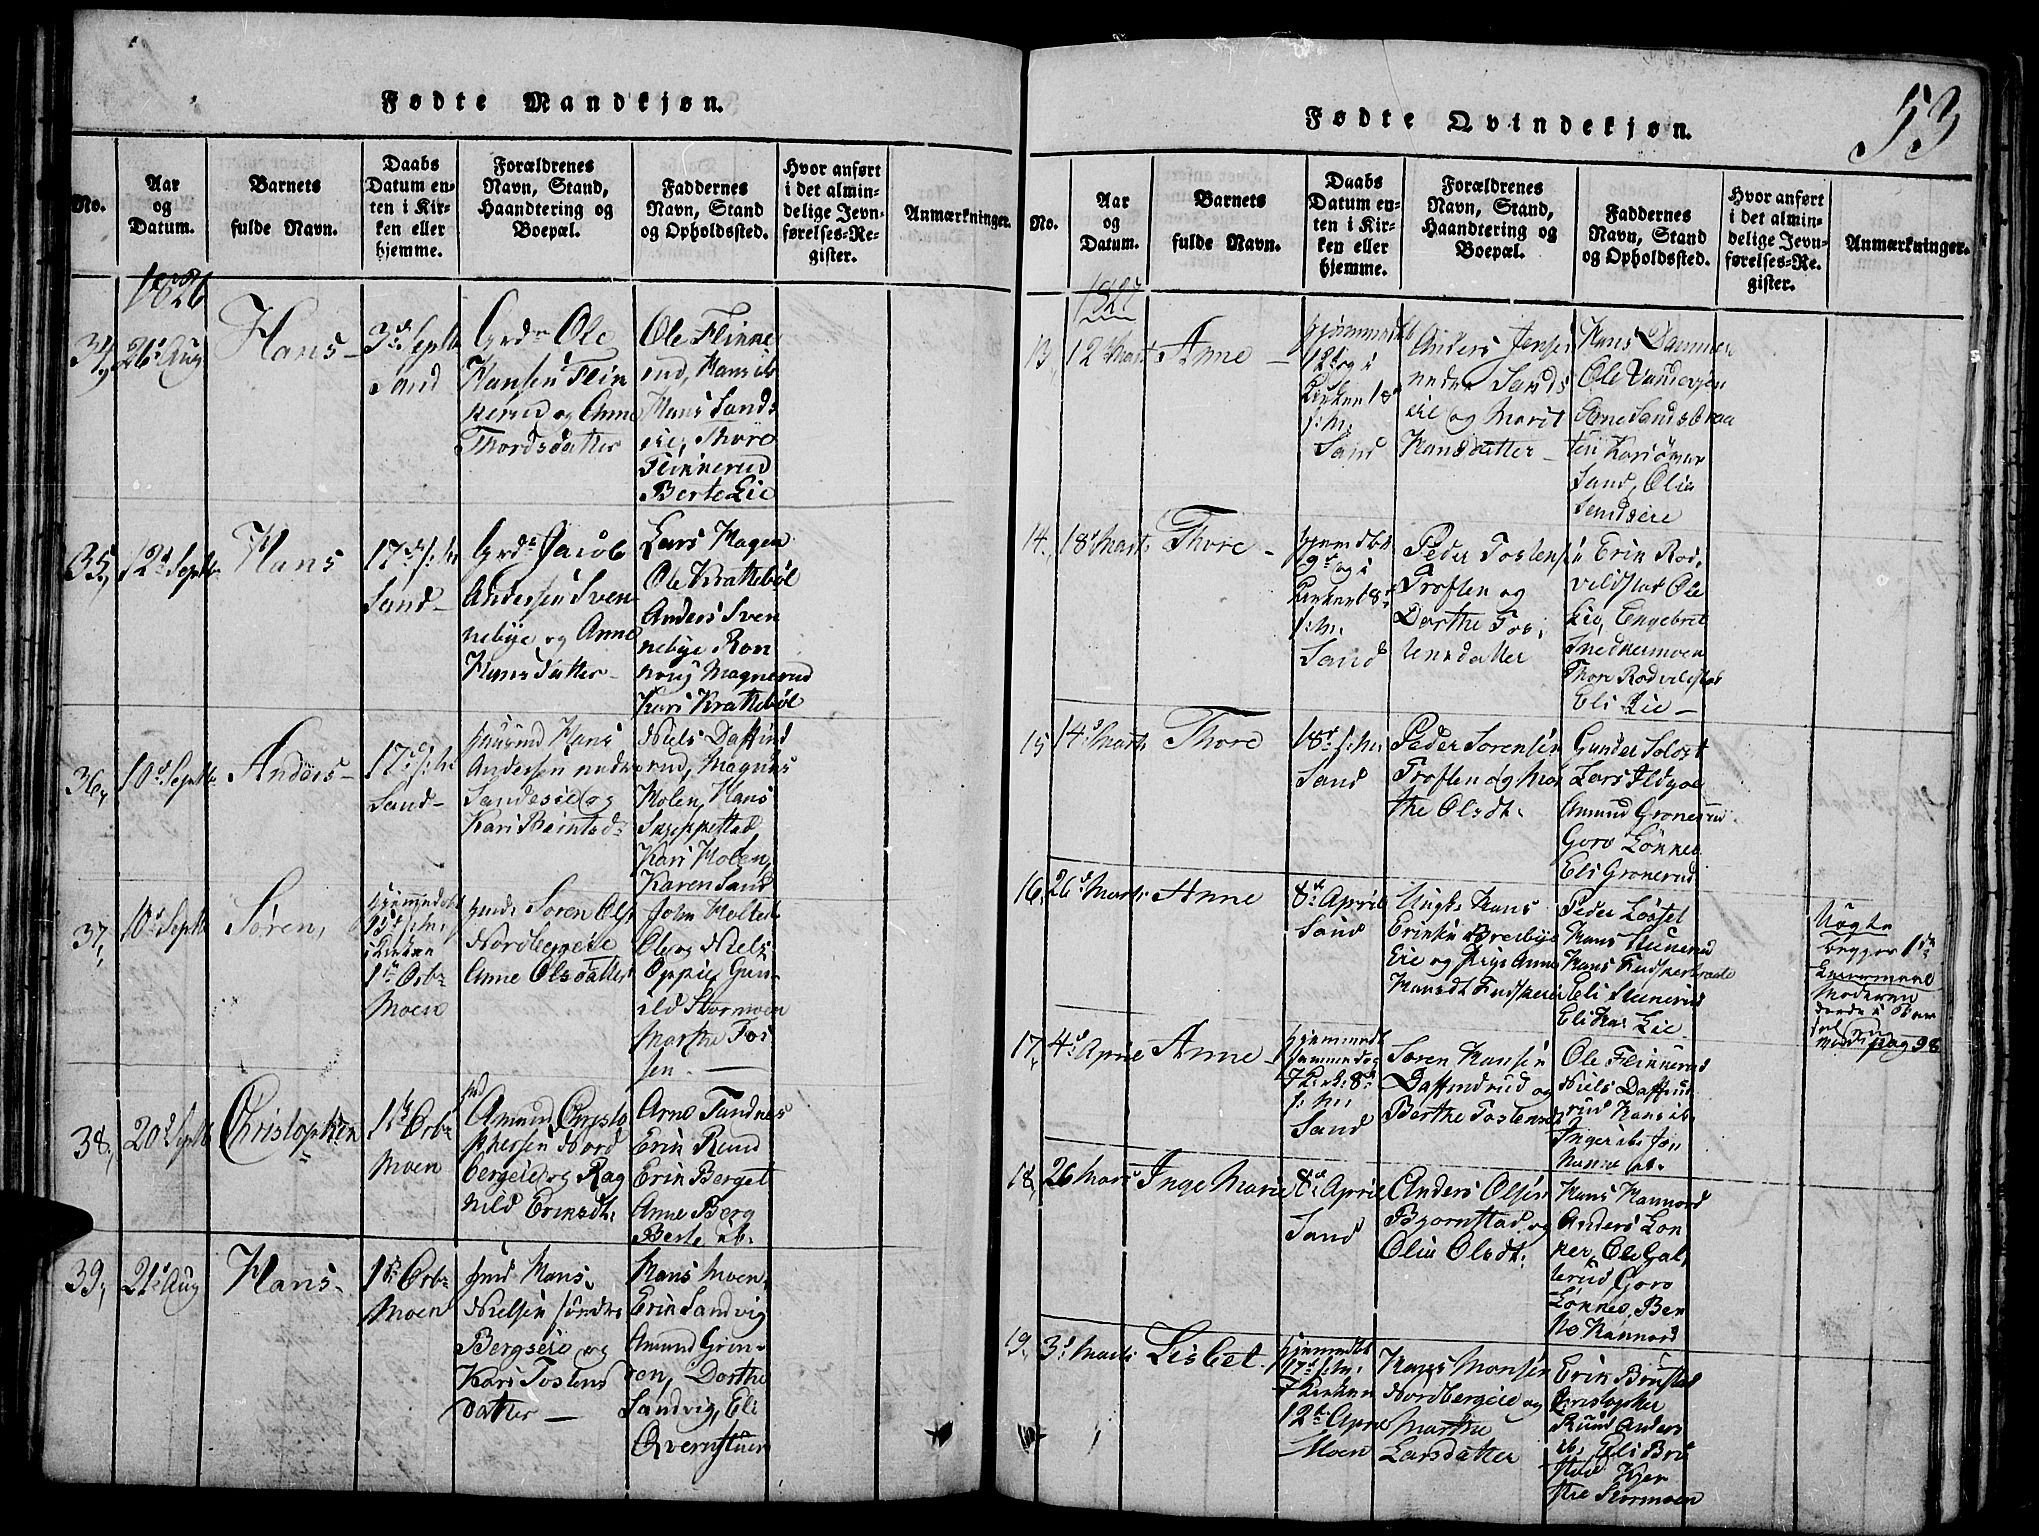 Fødte Mandkjøn.
No.
Aar
og
Datum.
Barnets
fulde Navn.
Daabs
Datum en-
ten i Kir-
ken eller
hjemme.
Forældrenes
Navn, Stand,
Haandtering og
Boepæl.
Faddernes
Navn, Stand
og Opholdssted.
Hvor anført
i det almin-
delige Jevn-
førelses-Re-
gister.
Anmærkninger.
1826
34,
21d Aug
Hans
3d Septb
Sand
Grdr Ole
Hansen Flin
nerud og Anne
Thordsdatter
Ole Flinne
rud, Hans ib
Hans Sands
eie, Thore
Flinnerud
Berte Lie
35,
12d Septb
Hans
17d
Sand
Grdr Jacob
Andersen Sven
nebye og Anne
Hansdatter
Lars Hagen
Ole Krattebøl
Anders Sven
nebye Ron
noug Magnerud
Kari Krattebøl
36,
10d Septb
Anders
17d
Sand
Hans
Andersen nedre
Sandeseie og
Kari
Niels Daffind
rud, Magnus
Molen, Hans
Skeppestad
Kari Molen,
Karen Sand
37,
10d Septb
Søren,
Kirken
1d Octbr
Moen
Soren Ols
Nordbergeie
Anne Olsdatter
John Holtet
Ole og Niels
Oppie, Gun
ild Stormoen
Marthe Fos
sen
38,
20d Septb
Christopher
1d Octbr
Moen
Amund Christo
phersen Nord
bergeie og Rag
nild Eriksdt:
Arne Sandnes
Erik Rund
Erik Berget
Anne Berg
Berte ib.
39,
21d Aug
Hans
1d Octbr
Moen
Hans
Nielsen søndre
Bergseie og
Kari Tostens
datter
Hans Moen
Erik Sandvig
Amund Grin-
den, Dorthe
Sandvig, Eli
Qvernstuen
53
Fødte Qvindekjøn.
No.
Aar
og
Datum.
Barnets
fulde Navn.
Daabs
Datum en-
ten i Kir-
ken eller
hjemme.
Forældrenes
Navn, Stand,
Haandtering og
Boepæl.
Faddernes
Navn, Stand
og Opholdssted.
Hvor anført
i det almin-
delige Jevn-
førelses-Re-
gister.
Anmærkninger.
1827
13,
12d Marts
Anne
hjemmedbt
12d og i
Kirken 18d
s: m:
Sand
Anders Jensen
nedre Sands
eie og Marit
Hansdatter
Hans Dammen
Ole
Arne Sandsbraa
ten Kari øvre
Sand, Olia
Sandseie
14,
18d Marts
Thore
hjemdbt
og i
Kirken 18d
s: m:
Sand
Peder Tostensen
Troften og
Dorthe Tos
tensdatter
Erik Rod
velstad Ole
Lie, Engebret
Snekkermoen
Thore Rodvelstad
Eli Lie
15
14d Marts
Thore
18d s: m:
Sand
Peder Sorensen
Troften og Mar
the Olsdt:
Gunder Solost
Lars
Amund Gronerud
Goro Lønnes
Eli Gronerud
16,
26d Marts
Anne
8d April
Sand
Ungk: Hans
Eriksen Breibye
Eie og Pige Anne
Hansdt
Peder
Hans Stenerud
Hans
Eli Stenerud
Lie
Uægte
begges 1ste
Leiermaal
Moderen
pag 98
17,
4d April
Anne
hjemmedt
8d
s: m:
Sand
Soren Hansen
Daffindrud og
Berthe Tostensd
Ole Flinnerud
Niels Daffind
rud Hans ib.
Inger ibd Jo
hanne ib.
18,
26 Mars
Inge Marie
8d April
Sand
Anders Olsen
Bjørnstad og
Olia Olsdt:
Hans Kannord
Anders Lon
ner, Ole Gal
terud Goro
Lønnes, Ben
te Kannord
19,
3d Marts
Lisbet
hjemmedbt
17d s: m:
i Kirken
12d April
Moen
Hans Monsen
Nordbergeie og
Marthe
Larsdatter
Erik Brustad
Christopher
Ruud Anders
ib, Eli Bru
stad Kjer
stie Stormoen